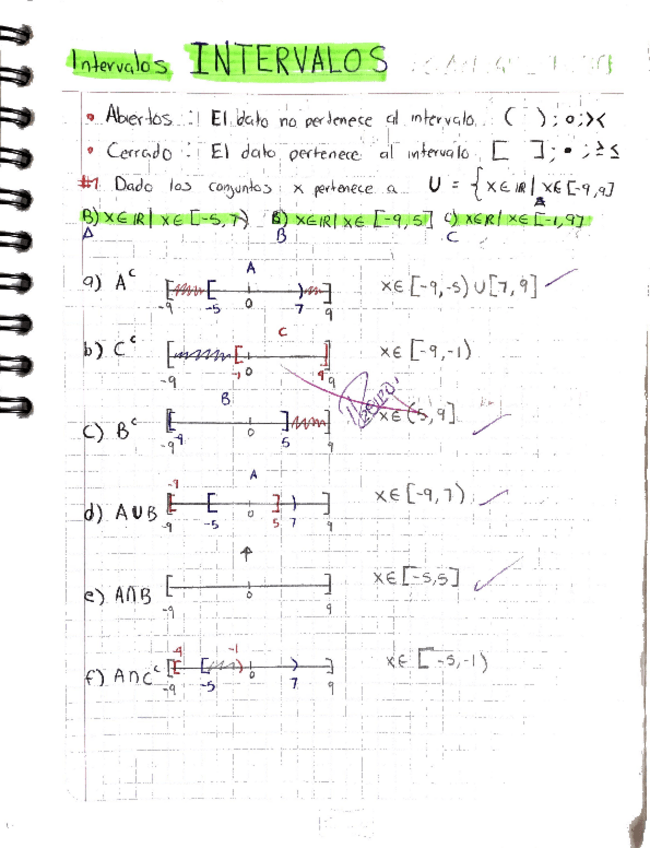 Intervalos INTERVALOS
• Abiertos : El dato no pertenece al intervalo ( ) ; o ; > <
• Cerrado : El dato pertenece al intervalo [ ] ; • ; ≥ ≤
#1 Dado los conjuntos x pertenece a U = {x∈IR | x∈[-9,9]
B) x∈IR | x∈ [-5,7) B) x∈IR | x∈ [-9,5] C) x∈R / x∈ [-1,9]
A B C
a) Aᶜ A -9 -5 0 7 9 x∈ [-9,-5) U [7,9]
b) Cᶜ C -9 -1 0 9 9 x∈ [-9,-1)
c) Bᶜ B -9 -9 0 5 9 x∈ (5,9]
d) AUB -9 A -9 -5 0 5 7 9 x∈ [-9,7)
e) A∩B -9 0 9 x∈ [-5,5]
f) A∩Cᶜ -9 -1 -9 -5 0 7 9 x∈ [-5,-1)